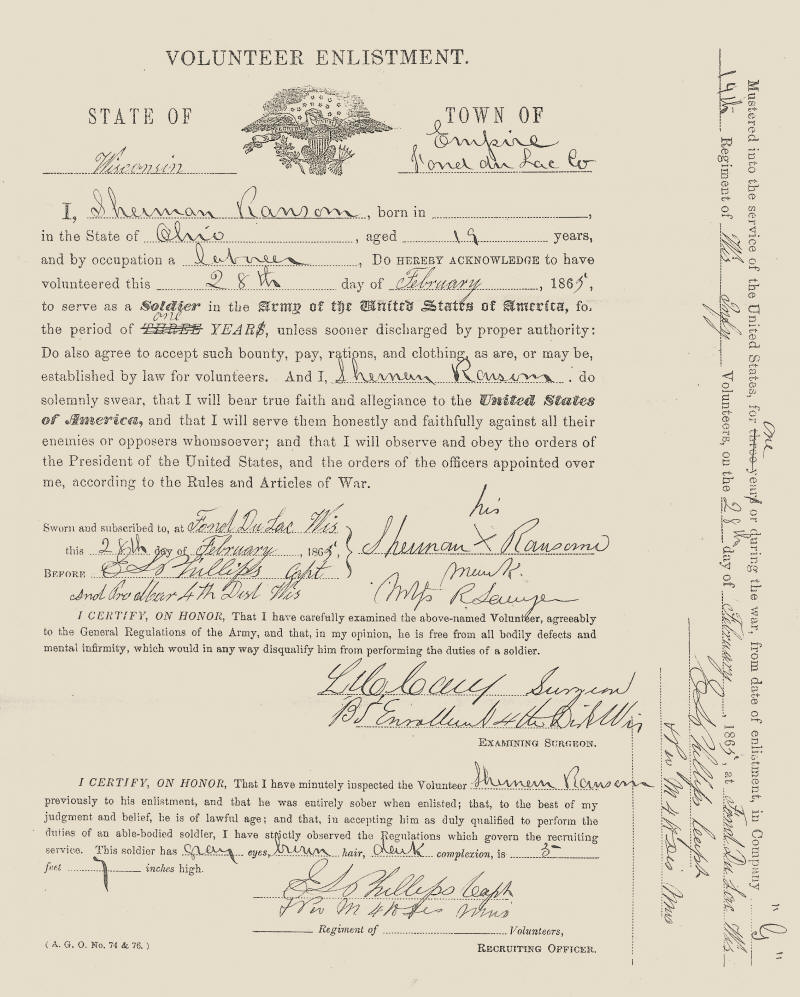 VOLUNTEER ENLISTMENT.
STATE OF
TOWN OF
Wisconsin
Empire
Fond du Lac Co
I, Sherman Ransom, born in
in the State of Ohio, aged 19 years,
and by occupation a laborer, DO HEREBY ACKNOWLEDGE to have
volunteered this 28th day of February, 1865,
to serve as a Soldier in the Army of the United States of America, for
one
the period of THREE YEARS, unless sooner discharged by proper authority:
Do also agree to accept such bounty, pay, rations, and clothing, as are, or may be,
established by law for volunteers. And I, Sherman Ransom. do
solemnly swear, that I will bear true faith and allegiance to the United States
of America, and that I will serve them honestly and faithfully against all their
enemies or opposers whomsoever; and that I will observe and obey the orders of
the President of the United States, and the orders of the officers appointed over
me, according to the Rules and Articles of War.
Sworn and subscribed to, at Fond Du Lac Wis
this 28th day of February, 1865,
BEFORE E L Phillips Capt
4th Dist Wis
his
Sherman X Ransom
mark.
I CERTIFY, ON HONOR, That I have carefully examined the above-named Volunteer, agreeably
to the General Regulations of the Army, and that, in my opinion, he is free from all bodily defects and
mental infirmity, which would in any way disqualify him from performing the duties of a soldier.
Surgeon
Bd Enrollment 4th Dist Wis
EXAMINING SURGEON.
I CERTIFY, ON HONOR, That I have minutely inspected the Volunteer Sherman Ransom
previously to his enlistment, and that he was entirely sober when enlisted; that, to the best of my
judgment and belief, he is of lawful age; and that, in accepting him as duly qualified to perform the
duties of an able-bodied soldier, I have strictly observed the Regulations which govern the recruiting
service. This soldier has gray eyes, brown hair, dark complexion, is 5
feet 7 inches high.
E L Phillips Capt
Pro M 4th Dis Wis
Regiment of Volunteers,
RECRUITING OFFICER.
( A. G. O. No. 74 & 76. )
Mustered into the service of the United States, for three years or during the war, from date of enlistment, in Company "G"
one
19th Regiment of Wis Infy Volunteers, on the 28th day of February, 1865, at Fond Du Lac Wis
E L Phillips Capt
Pro M 4th Dis Wis